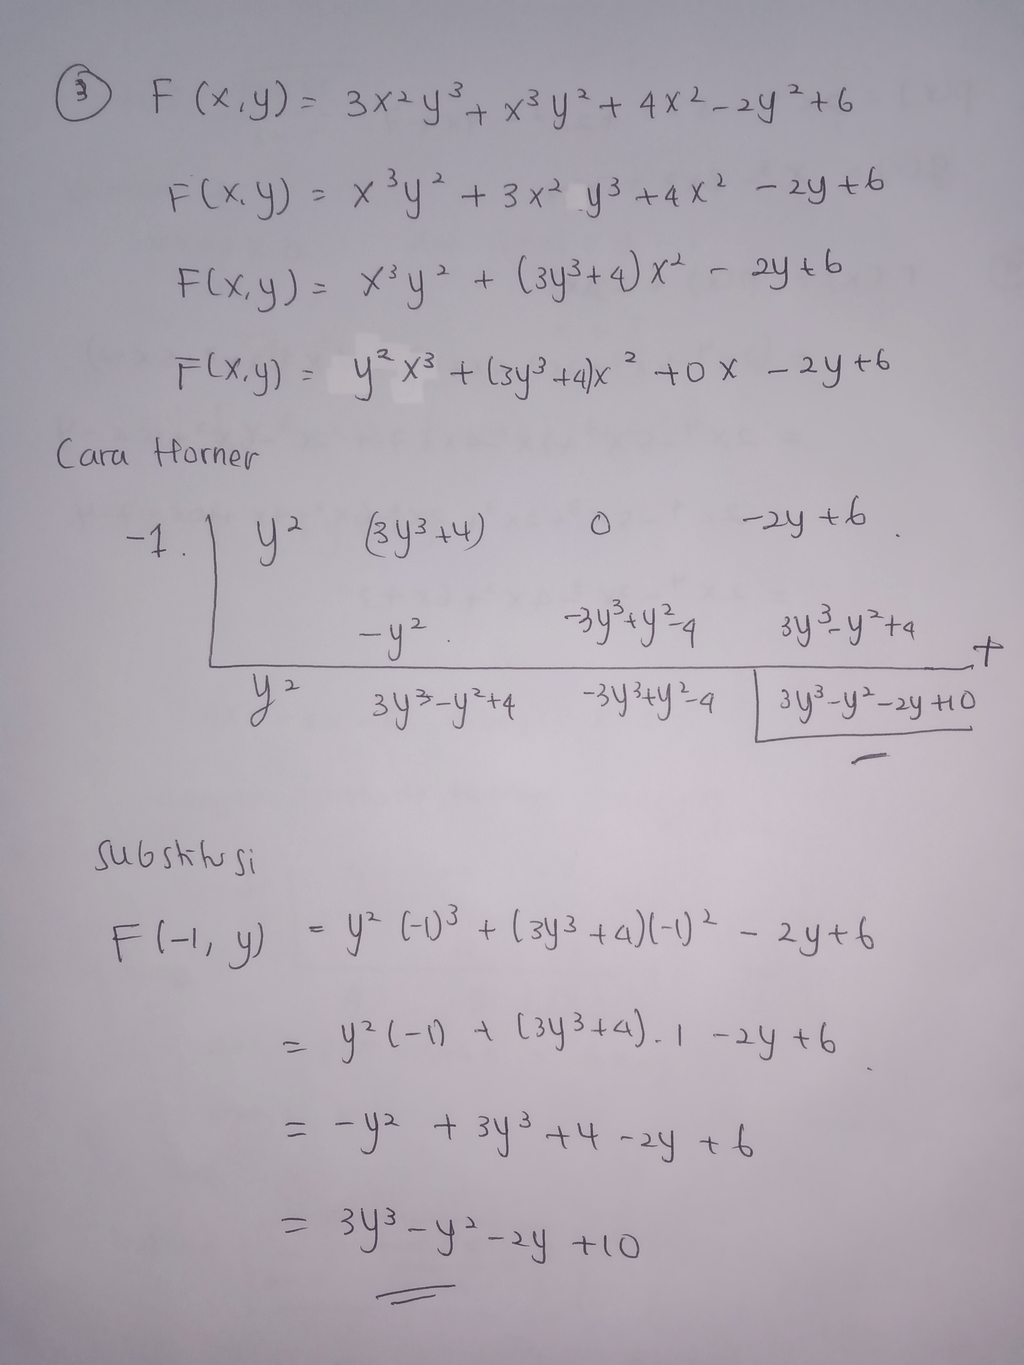 ③ F (x,y) = 3x²y³ + x³y² + 4x² - 2y² + 6
F(x,y) = x³y² + 3x² y³ + 4x² - 2y + 6
F(x,y) = x³y² + (3y³ + 4) x² - 2y + 6
F(x,y) = y² x³ + (3y³ + 4)x² + 0x - 2y + 6
Cara Horner
-1. y² (3y³ + 4) 0 -2y + 6
-y² -3y³ + y² - 4 3y³ - y² + 4 +
y² 3y³ - y² + 4 -3y³ + y² - 4 3y³ - y² - 2y + 10
Substitusi
F (-1, y) = y² (-1)³ + (3y³ + 4)(-1)² - 2y + 6
= y² (-1) + (3y³ + 4) . 1 - 2y + 6
= -y² + 3y³ + 4 - 2y + 6
= 3y³ - y² - 2y + 10